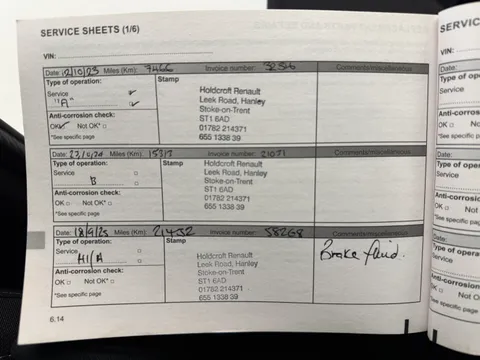 SERVICE SHEETS (1/6)
VIN:
Date: 12/10/23 Miles (Km): 7466 Invoice number: 3256 Comments/miscellaneous
Type of operation: Stamp
Service ✓
"A" ✓
Anti-corrosion check:
OK ✓ Not OK* □
*See specific page
Holdcroft Renault
Leek Road, Hanley
Stoke-on-Trent
ST1 6AD
01782 214371
655 1338 39
Date: Miles (Km): Invoice number: 21071 Comments/miscellaneous
Type of operation: Stamp
Service □
B □
Anti-corrosion check:
OK □ Not OK* □
*See specific page
Holdcroft Renault
Leek Road, Hanley
Stoke-on-Trent
ST1 6AD
01782 214371
655 1338 39
Date: 18/9/25 Miles (Km): 21432 Invoice number: 58268 Comments/miscellaneous
Type of operation: Stamp
Service □
□
Anti-corrosion check:
OK □ Not OK* □
*See specific page
Holdcroft Renault
Leek Road, Hanley
Stoke-on-Trent
ST1 6AD
01782 214371
655 1338 39
Brake fluid.
6.14
SERVICE
VIN:
Date:
Type of op
Service
Anti-corros
OK □ Not
*See specific
Date:
Type of op
Service
Anti-corro
OK □ No
*See specif
Date:
Type of opera
Service
Anti-corro
OK □ N
*See speci